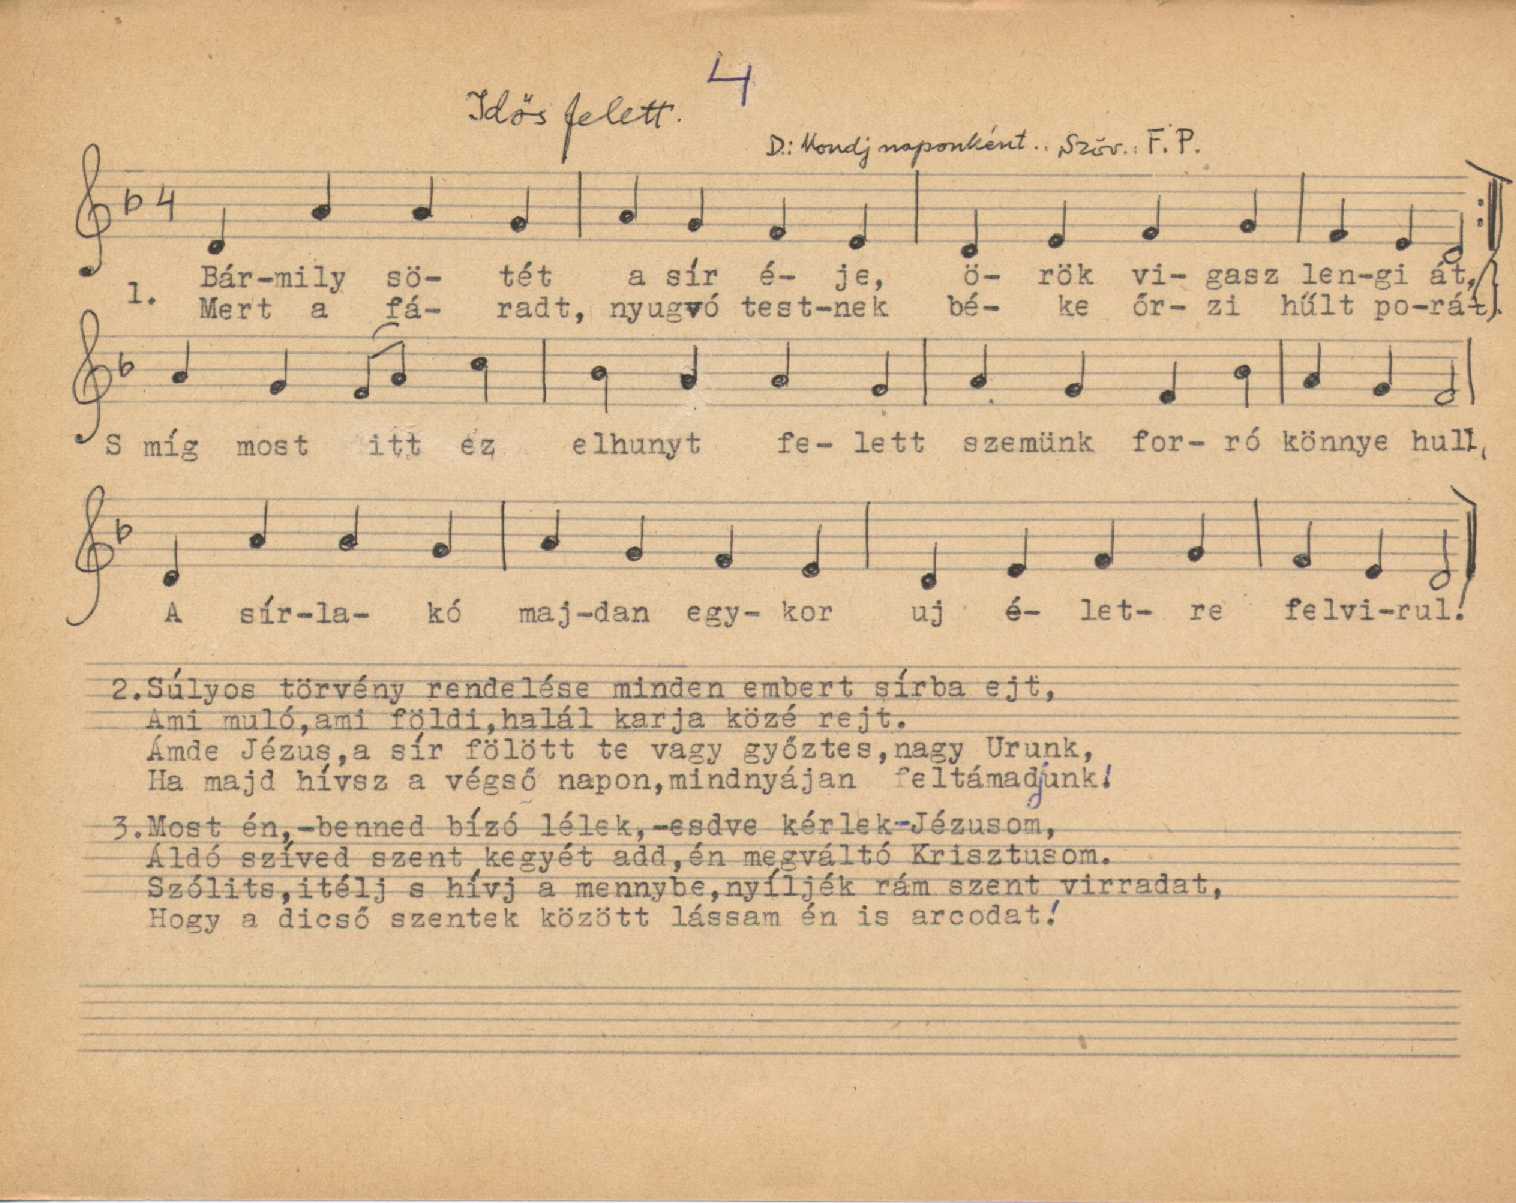 4
Idős felett.
D.: Mondj naponként.. Szöv.: F. P.
4
1. Bár-mily sö- tét a sír é- je, ö- rök vi- gasz len-gi át,
Mert a fá- radt, nyugvó test-nek bé- ke őr- zi hűlt po-rát.
S míg most itt ez elhunyt fe- lett szemünk for- ró könnye hull,
A sír-la- kó maj-dan egy- kor uj é- let- re felvi-rul!
2.Súlyos törvény rendelése minden embert sírba ejt,
Ami muló,ami földi,halál karja közé rejt.
Ámde Jézus,a sír fölött te vagy győztes,nagy Urunk,
Ha majd hívsz a végső napon,mindnyájan feltámadjunk!
3.Most én,-benned bízó lélek,-esdve kérlek-Jézusom,
Áldó szíved szent kegyét add,én megváltó Krisztusom.
Szólits,itélj s hívj a mennybe,nyíljék rám szent virradat,
Hogy a dicső szentek között lássam én is arcodat!